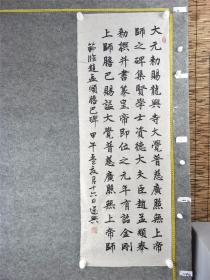 大元勅賜龍興寺大覺普慈廣照無上帝
師之碑集賢學士資德大夫臣趙孟頫奉
勅撰并書篆皇帝即位之元年有詔金剛
上師膽巴賜謚大覺普慈廣照無上帝師
節臨趙孟頫膽巴碑 甲午 夏月十六日